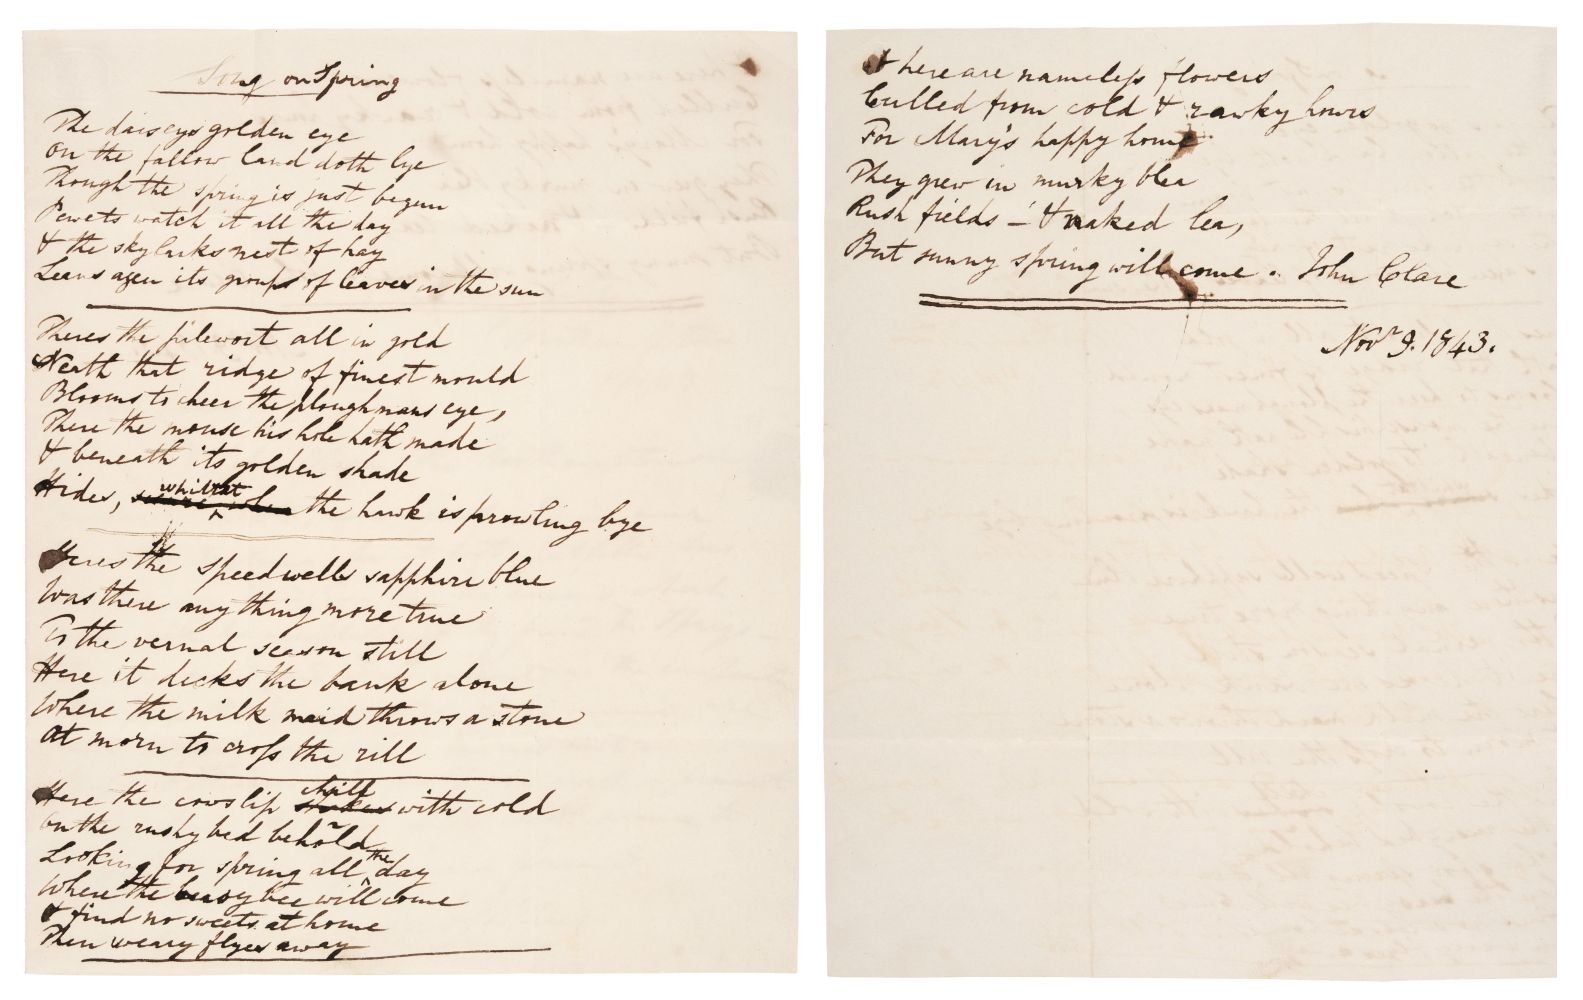 Song on Spring
The daiseys golden eye
On the fallow land doth lye
Though the spring is just begun
Pewets watch it all the day
& the skylarks nest of hay
Leans agen its groups of leaves in the sun
Theres the pilewort all in gold
Neath that ridge of finest mould
Blooms to cheer the ploughmans eye,
There the mouse his hole hath made
& beneath its golden shade
Hides, whilstat the hawk is prowling bye
Heres the speedwells sapphire blue
Was there any thing more true
To the vernal season still
Here it decks the bank alone
Where the milk maid throws a stone
At morn to cross the rill
Here the cowslip chill with cold
On the rushy bed behold
Looking for spring all the day
Where the heavy bee will come
& find no sweets at home
Then weary flyes away
& here are nameless flowers
Culled from cold & rawky hours
For Mary's happy home
They grew in murky blea
Rush fields – & naked lea,
But sunny spring will come. John Clare
Novr 9. 1843.